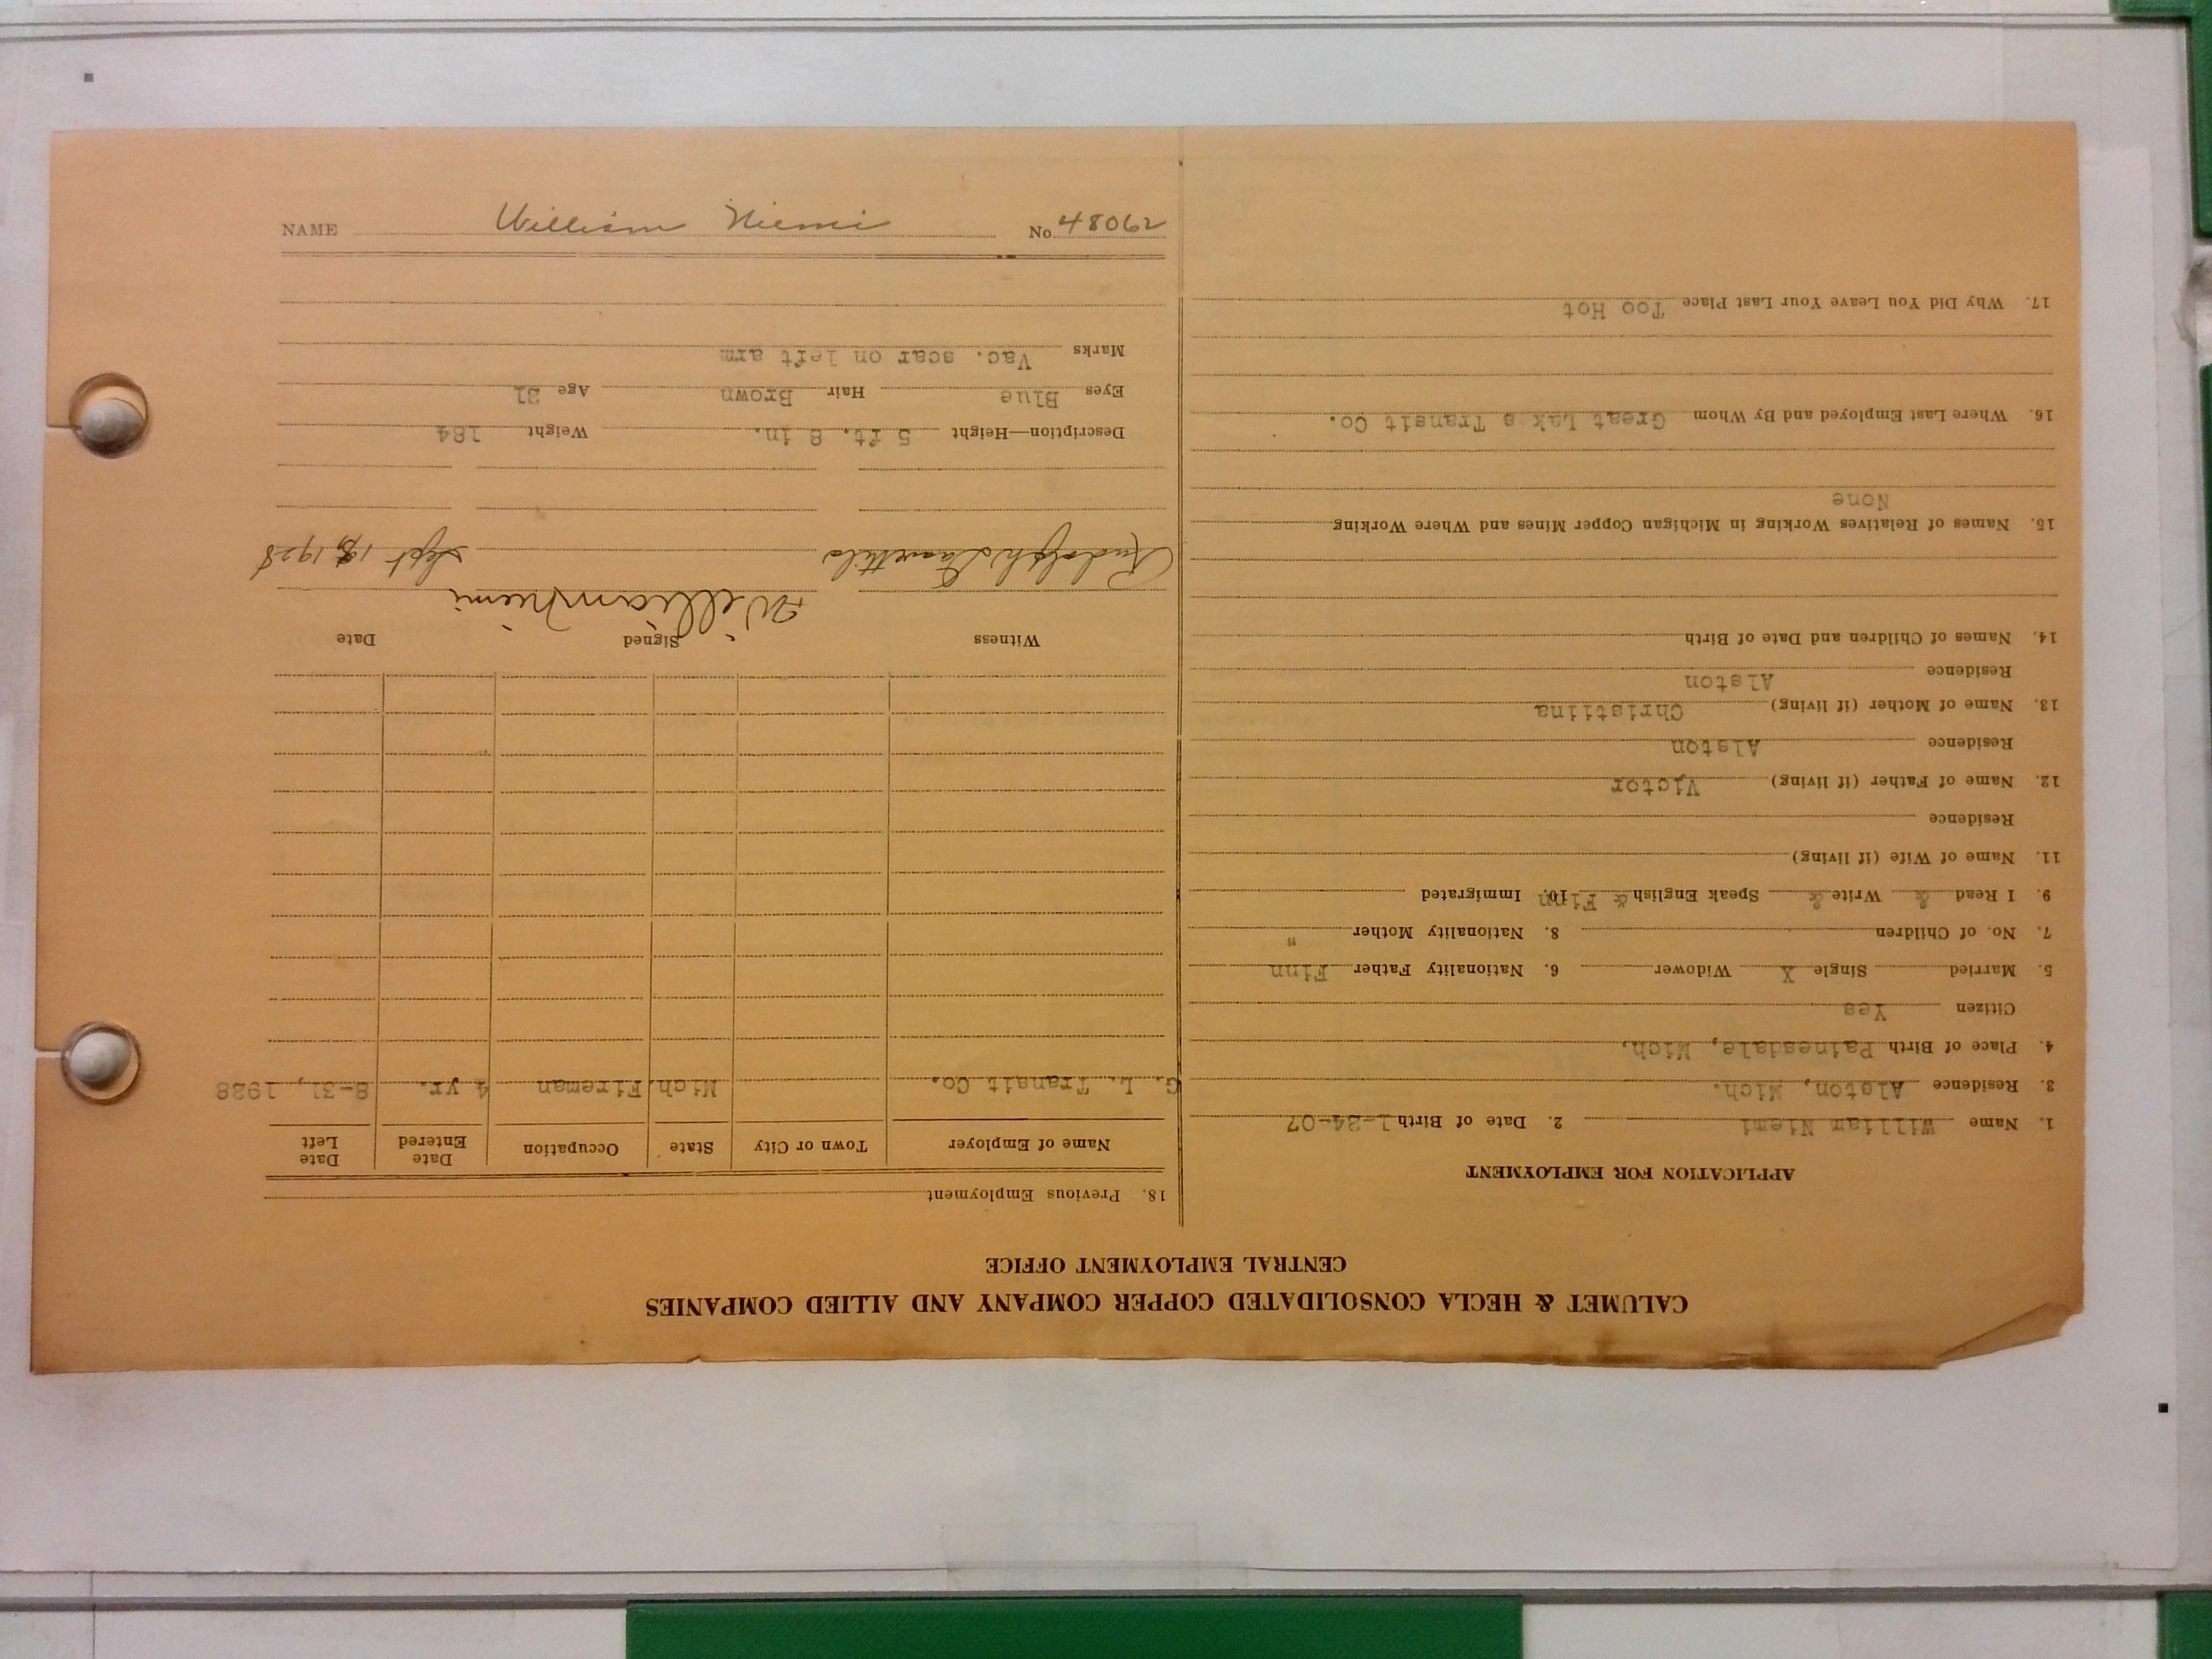 CALUMET & HECLA CONSOLIDATED COPPER COMPANY AND ALLIED COMPANIES
CENTRAL EMPLOYMENT OFFICE
APPLICATION FOR EMPLOYMENT
1. Name William Niemi 2. Date of Birth 1-24-07
3. Residence Alston, Mich.
4. Place of Birth Painesdale, Mich.
Citizen Yes
5. Married Single X Widower 6. Nationality Father Finn
7. No. of Children 8. Nationality Mother "
9. I Read & Write & Speak English & Finn 10. Immigrated
11. Name of Wife (if living)
Residence
12. Name of Father (if living) Victor
Residence Alston
13. Name of Mother (if living) Christiina
Residence Alston
14. Names of Children and Date of Birth
15. Names of Relatives Working in Michigan Copper Mines and Where Working
None
16. Where Last Employed and By Whom Great Lakes Transit Co.
17. Why Did You Leave Your Last Place Too Hot
18. Previous Employment
Name of Employer Town or City State Occupation Date Entered Date Left
G. L. Transit Co. Mich. Fireman 4 yr. 8-31, 1928
Witness Signed Date
William Niemi
Rudolph Sept 18, 1928
Description—Height 5 ft. 8 in. Weight 184
Eyes Blue Hair Brown Age 21
Marks Vac. scar on left arm
NAME William Niemi No 48062